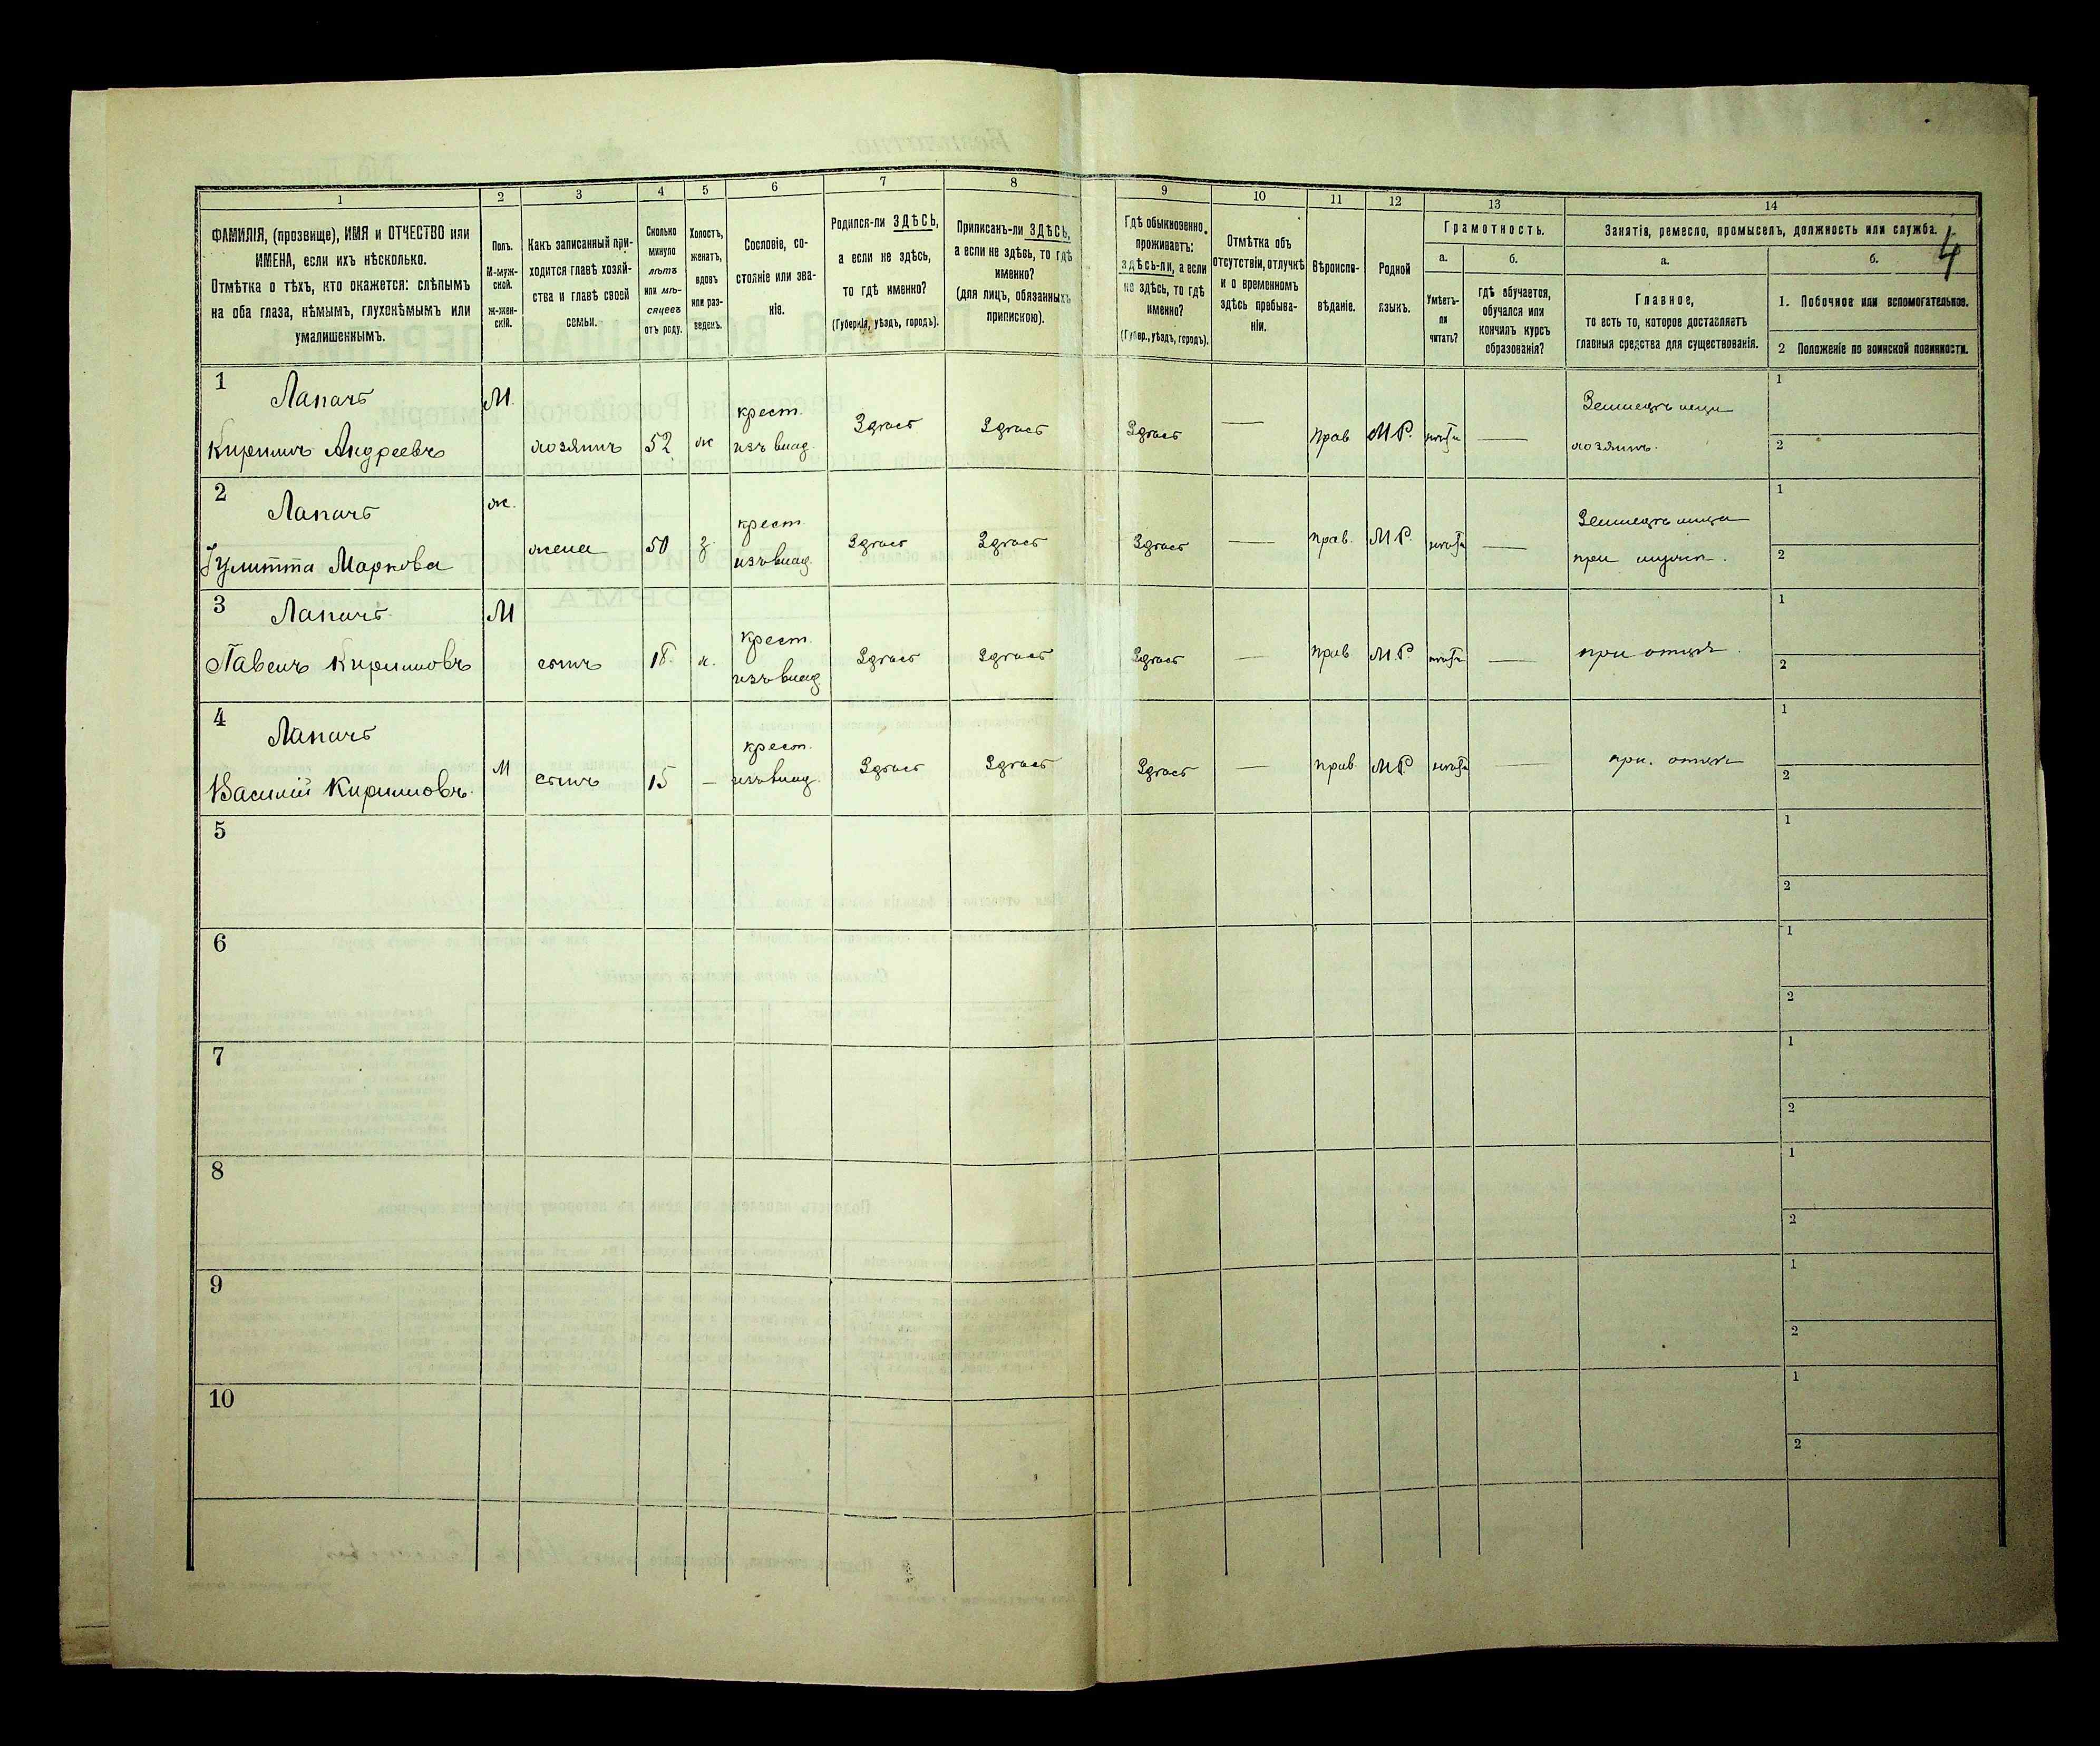 4
1
2
3
4
5
6
7
8
9
10
11
12
13
14
ФАМИЛІЯ, (прозвище), ИМЯ и ОТЧЕСТВО или
ИМЕНА, если ихъ нѣсколько.
Отмѣтка о тѣхъ, кто окажется: слѣпымъ
на оба глаза, нѣмымъ, глухонѣмымъ или
умалишеннымъ.
Полъ.
М-муж-
ской.
ж-жен-
скій.
Какъ записанный при-
ходится главѣ хозяй-
ства и главѣ своей
семьи.
Сколько
минуло
лѣтъ
или мѣ-
сяцевъ
отъ роду.
Холостъ,
женатъ,
вдовъ
или раз-
веденъ.
Сословіе, со-
стояніе или зва-
ніе.
Родился-ли ЗДѢСЬ,
а если не здѣсь,
то гдѣ именно?
(Губернія, уѣздъ, городъ).
Приписанъ-ли ЗДѢСЬ,
а если не здѣсь, то гдѣ
именно?
(для лицъ, обязанныхъ
припискою).
Гдѣ обыкновенно
проживаетъ:
здѣсь-ли, а если
не здѣсь, то гдѣ
именно?
(Губер., уѣздъ, городъ).
Отмѣтка объ
отсутствіи, отлучкѣ
и о временномъ
здѣсь пребыва-
ніи.
Вѣроиспо-
вѣданіе.
Родной
языкъ.
Грамотность.
а.
б.
Умѣетъ-
ли
читать?
гдѣ обучается,
обучался или
кончилъ курсъ
образованія?
Занятія, ремесло, промыселъ, должность или служба.
а.
б.
Главное,
то есть то, которое доставляетъ
главныя средства для существованія.
1. Побочное или вспомогательное.
2 Положеніе по воинской повинности.
1
Лапачъ
Кириллъ Андреевъ
М.
хозяинъ
52
ж
крест.
изъ влад.
Здѣсь
Здѣсь
Здѣсь
—
прав
М.Р.
нѣтъ
—
Земледѣлецъ
хозяинъ.
1
2
2
Лапачъ
Іулитта Маркова
ж.
жена
50
з
крест.
изъ влад.
Здѣсь
Здѣсь
Здѣсь
—
прав.
М.Р.
нѣтъ
—
при мужѣ.
1
2
3
Лапачъ
Павелъ Кирилловъ
М
сынъ
18.
х.
крест.
изъ влад.
Здѣсь
Здѣсь
Здѣсь
—
прав
М.Р.
нѣтъ
—
при отцѣ.
1
2
4
Лапачъ
Василій Кирилловъ.
М
сынъ
15
—
крест.
изъ влад.
Здѣсь
Здѣсь
Здѣсь
—
прав.
М.Р.
нѣтъ
—
при. отцѣ
1
2
5
1
2
6
1
2
7
1
2
8
1
2
9
1
2
10
1
2